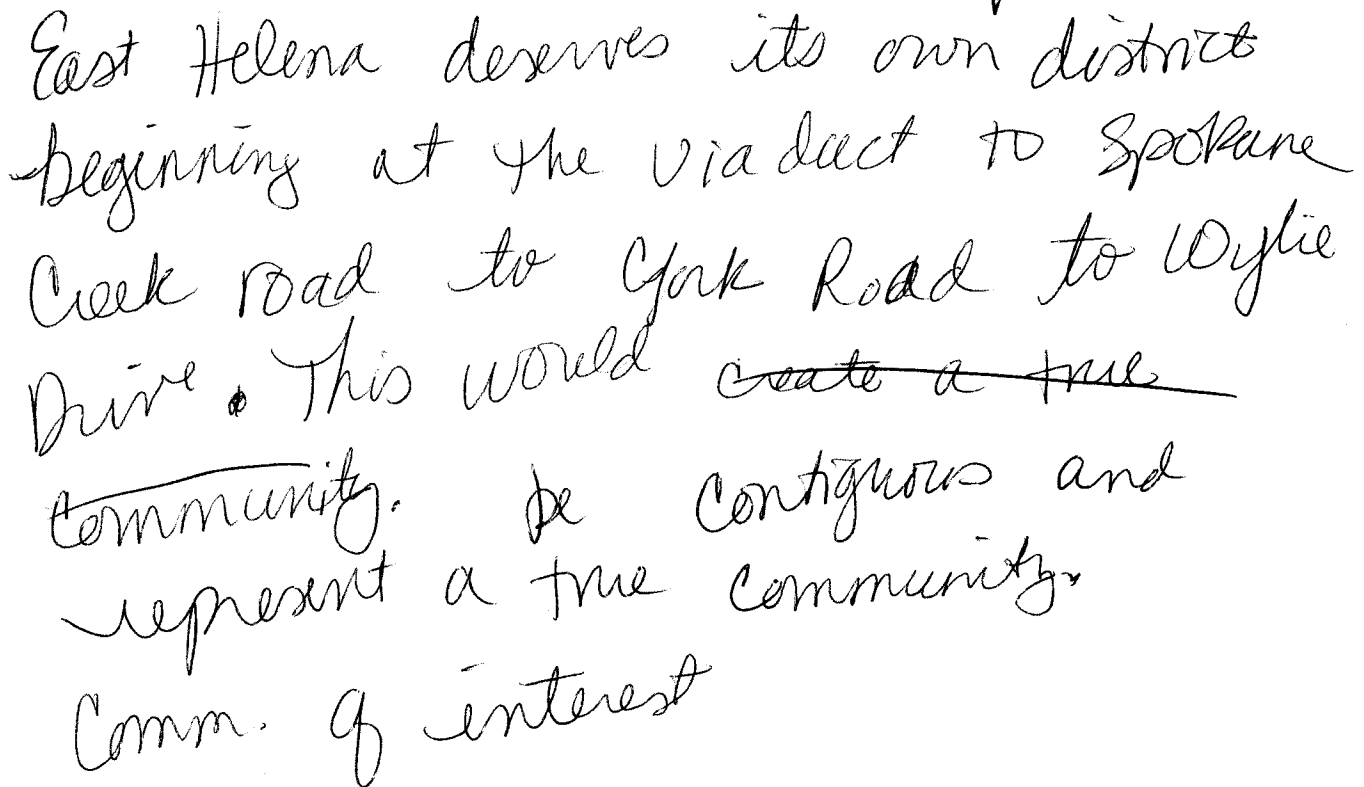 East Helena deserves its own district
beginning at the viaduct to Spokane
Creek road to York Road to Wylie
Drive. This would create a true
community. be contiguous and
represent a true community.
Comm. of interest